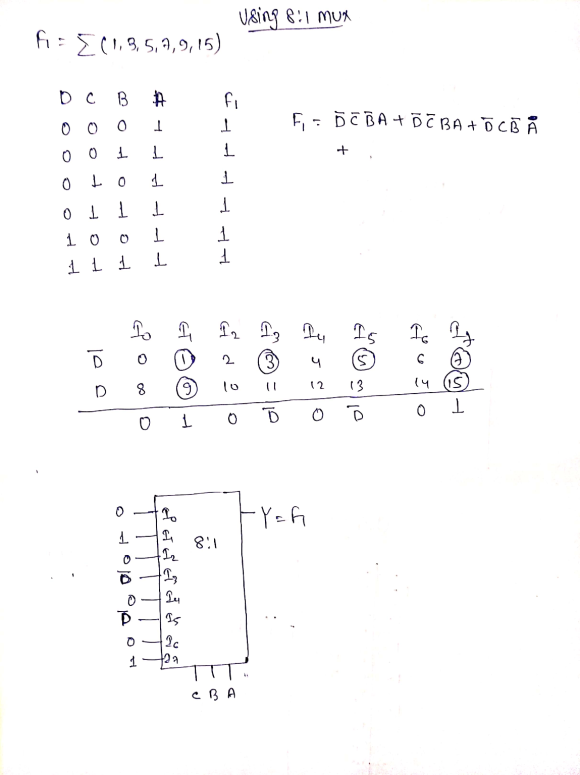 Using 8:1 mux
F1 = Σ(1,3,5,7,9,15)
D C B A F1
0 0 0 1 1
0 0 1 1 1
0 1 0 1 1
0 1 1 1 1
1 0 0 1 1
1 1 1 1 1
F1 = D̅ C̅ B̅ A + D̅ C̅ B A + D̅ C B̅ A
+
I0 I1 I2 I3 I4 I5 I6 I7
D̅ 0 1 2 3 4 5 6 7
D 8 9 10 11 12 13 14 15
0 1 0 D̅ 0 D̅ 0 1
0 I0 Y = F1
1 I1 8:1
0 I2
D̅ I3
0 I4
D̅ I5
0 I6
1 I7
C B A